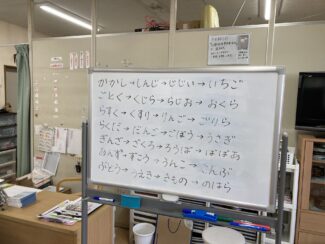 かかし→しんじ→じじい→いちご
ごとく→くじら→らじお→おくら
らすく→くすり→りんご→ごりら
らくだ→だんご→ごぼう→うさぎ
ぎんざ→ざくろ→ろうば→ばばあ
あんず→ずこう→うんこ→こんぶ
ぶどう→うえき→きもの→のはら